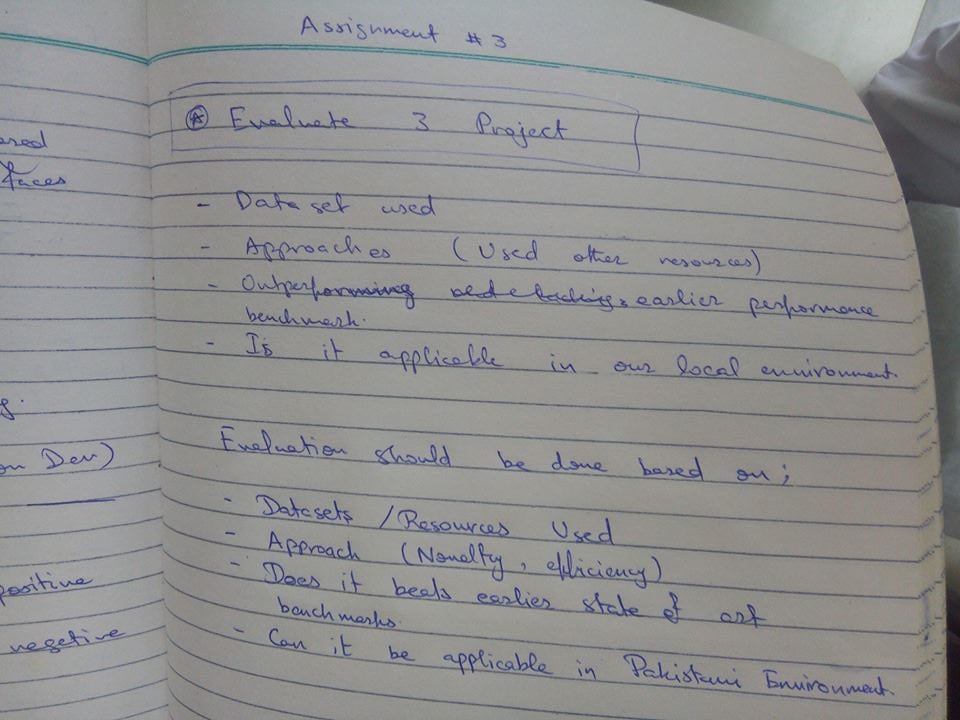 Assignment # 3
Ⓐ Evaluate 3 Project
- Data set used
- Approaches (Used other resources)
- Outperforming earlier performance
benchmark.
- Is it applicable in our local environment.
Evaluation should be done based on;
- Datasets / Resources Used
- Approach (Novelty, efficiency)
- Does it beats earlier state of art
benchmarks.
- Can it be applicable in Pakistani Environment.
faces
g.
on Dev)
positive
negetive